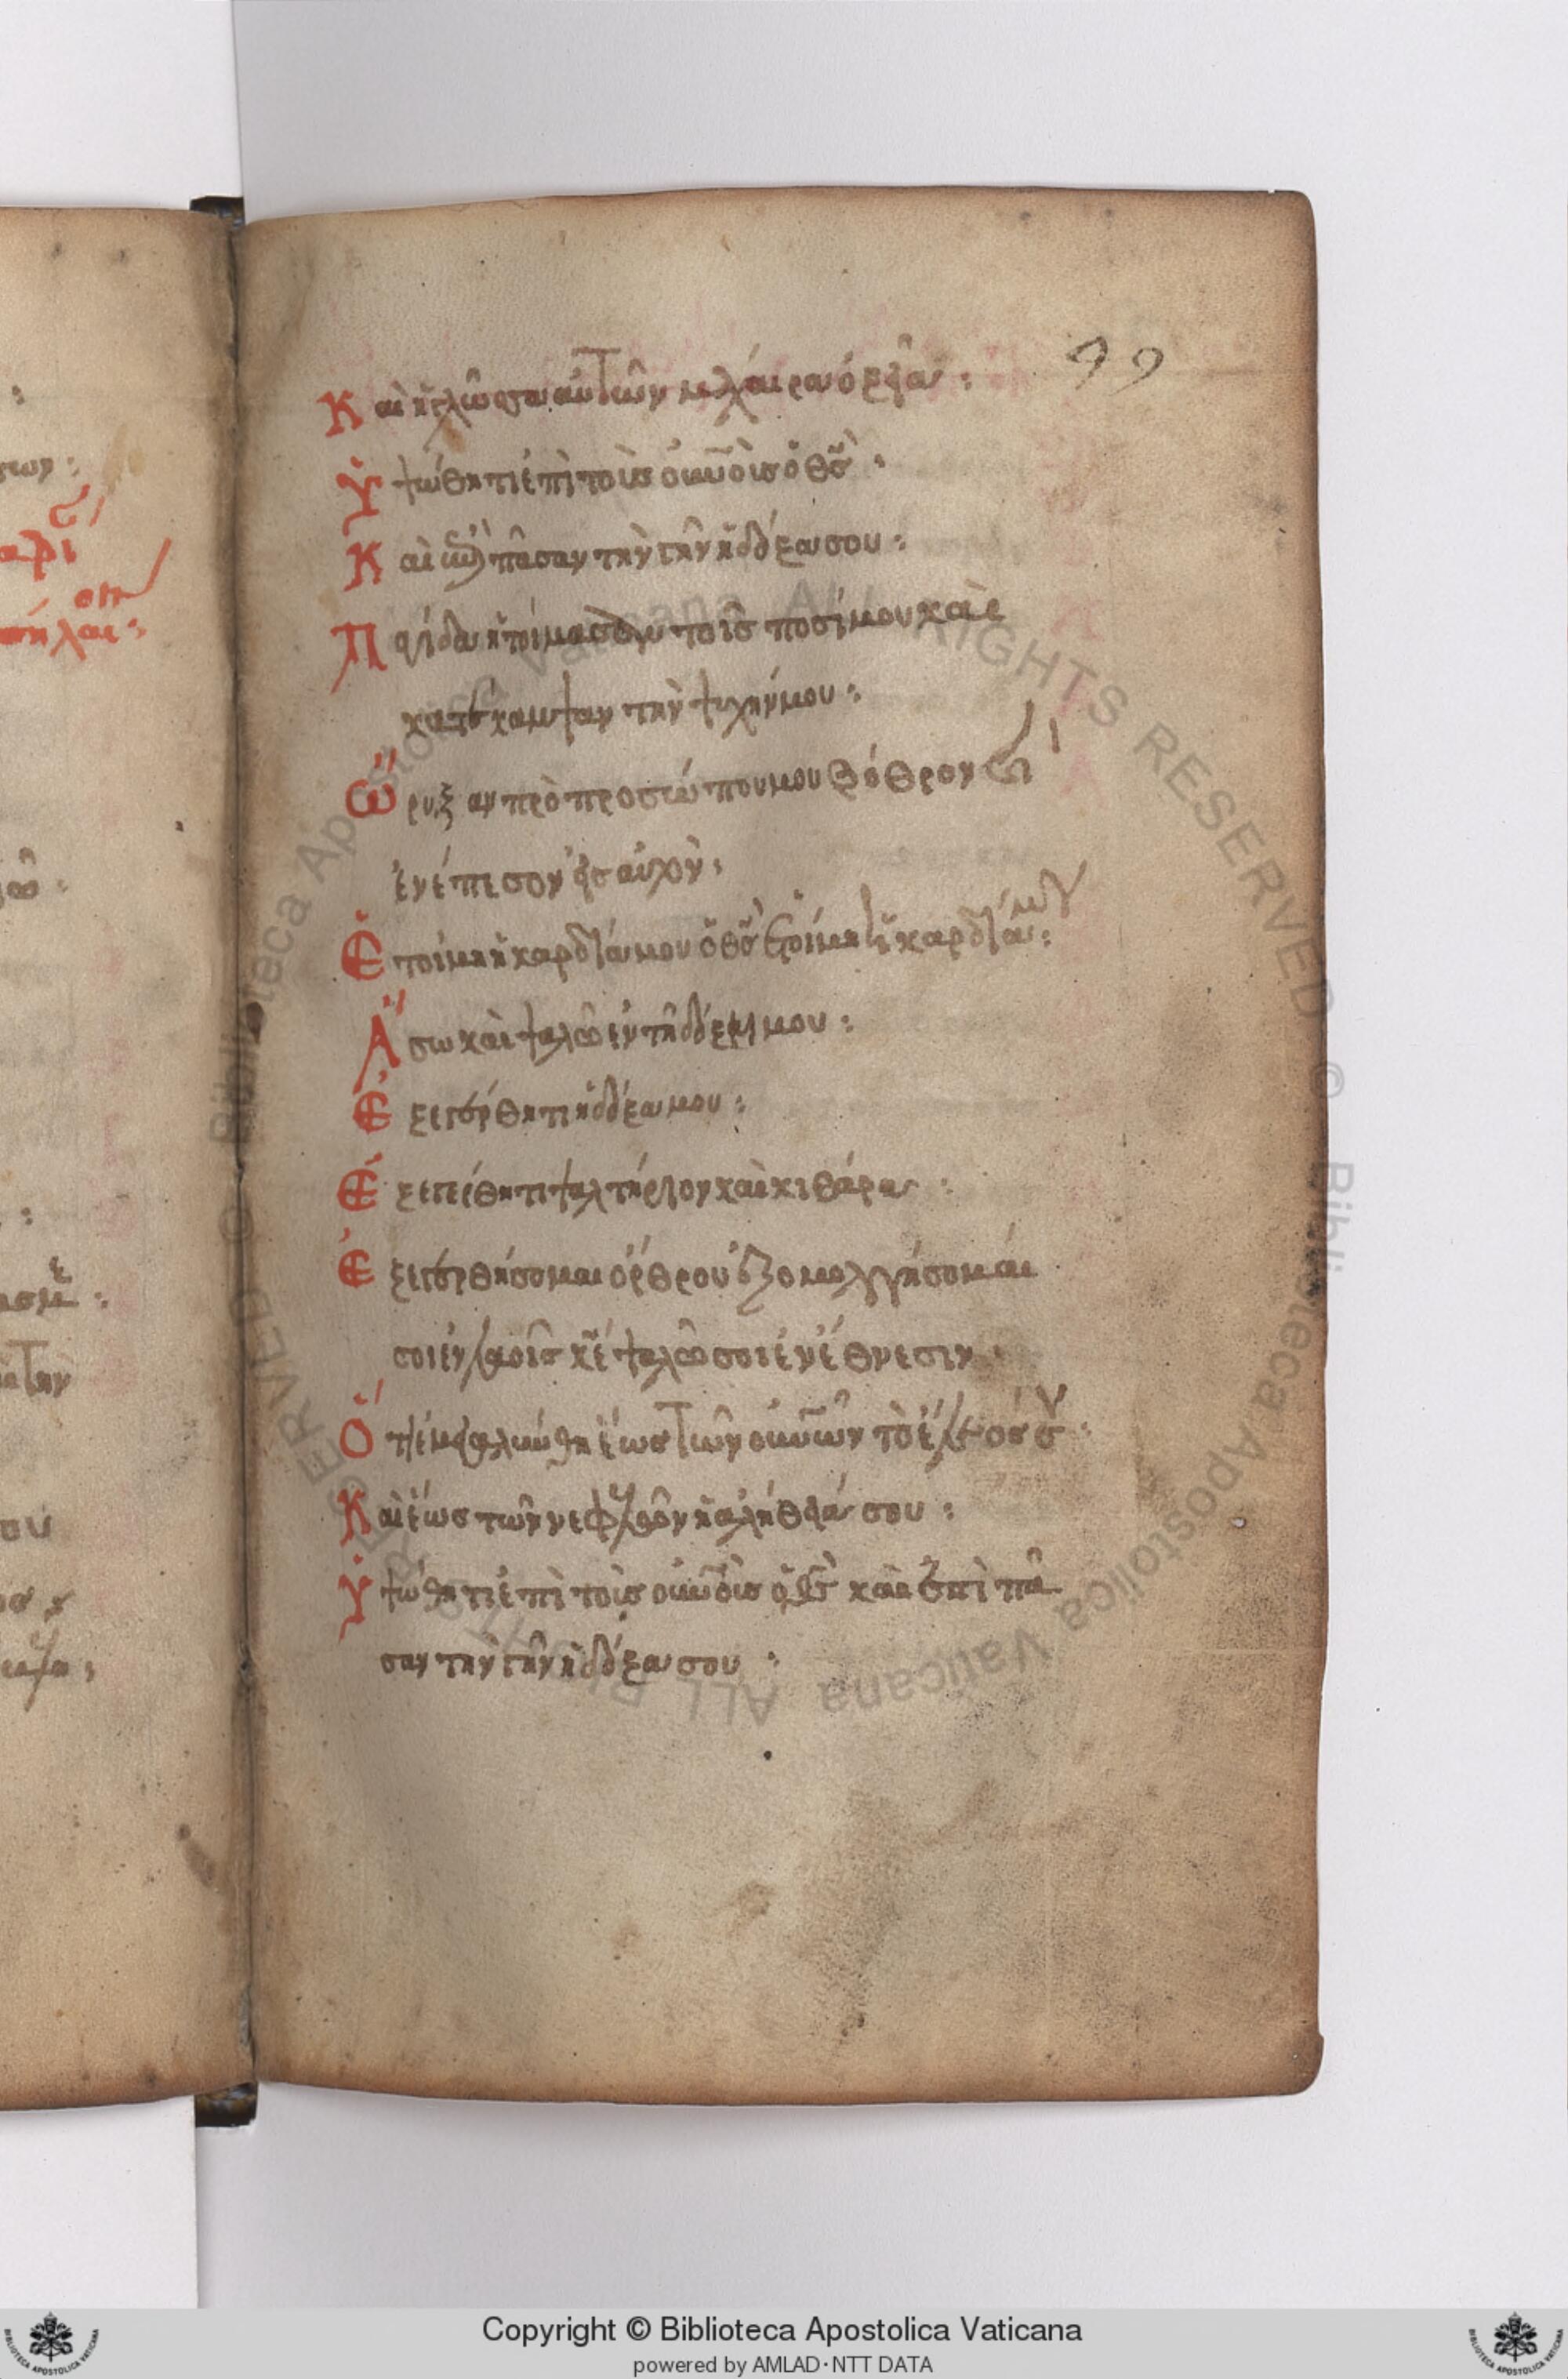 99
Καὶ ἡ γλῶσσα αὐτῶν μάχαιρα ὀξεῖα :
Ὑψώθητι ἐπὶ τοὺς οὐνοὺς ὁ θς :
Καὶ ἐπὶ πᾶσαν τὴν γῆν ἡ δόξα σου :
Παγίδα ἡτοίμασαν τοῖς ποσί μου καὶ
κατέκαμψαν τὴν ψυχήν μου :
Ὤρυξαν πρὸ προσώπου μου βόθρον καὶ
ἐνέπεσον εἰς αὐτὸν :
Ἑτοίμη ἡ καρδία μου ὁ θς ἑτοίμη ἡ καρδία μου :
Ἄσω καὶ ψαλῶ ἐν τῇ δόξη μου :
Ἐξεγέρθητι ἡ δόξα μου :
Ἐξεγέρθητι ψαλτήριον καὶ κιθάρα :
Ἐξεγερθήσομαι ὄρθρου ἐξομολογήσομαι
σοι ἐν λαοῖς κε ψαλῶ σοι ἐν ἔθνεσιν
Ὅτι ἐμεγαλύνθη ἕως τῶν οὐνῶν τὸ ἔλεος σου :
Καὶ ἕως τῶν νεφελῶν ἡ ἀλήθεια σου :
Ὑψώθητι ἐπὶ τοὺς οὐνοὺς ὁ θς καὶ ἐπὶ πᾶ
σαν τὴν γῆν ἡ δόξα σου :
Biblioteca Apostolica Vaticana ALL RIGHTS RESERVED ©
Copyright © Biblioteca Apostolica Vaticana
powered by AMLAD·NTT DATA